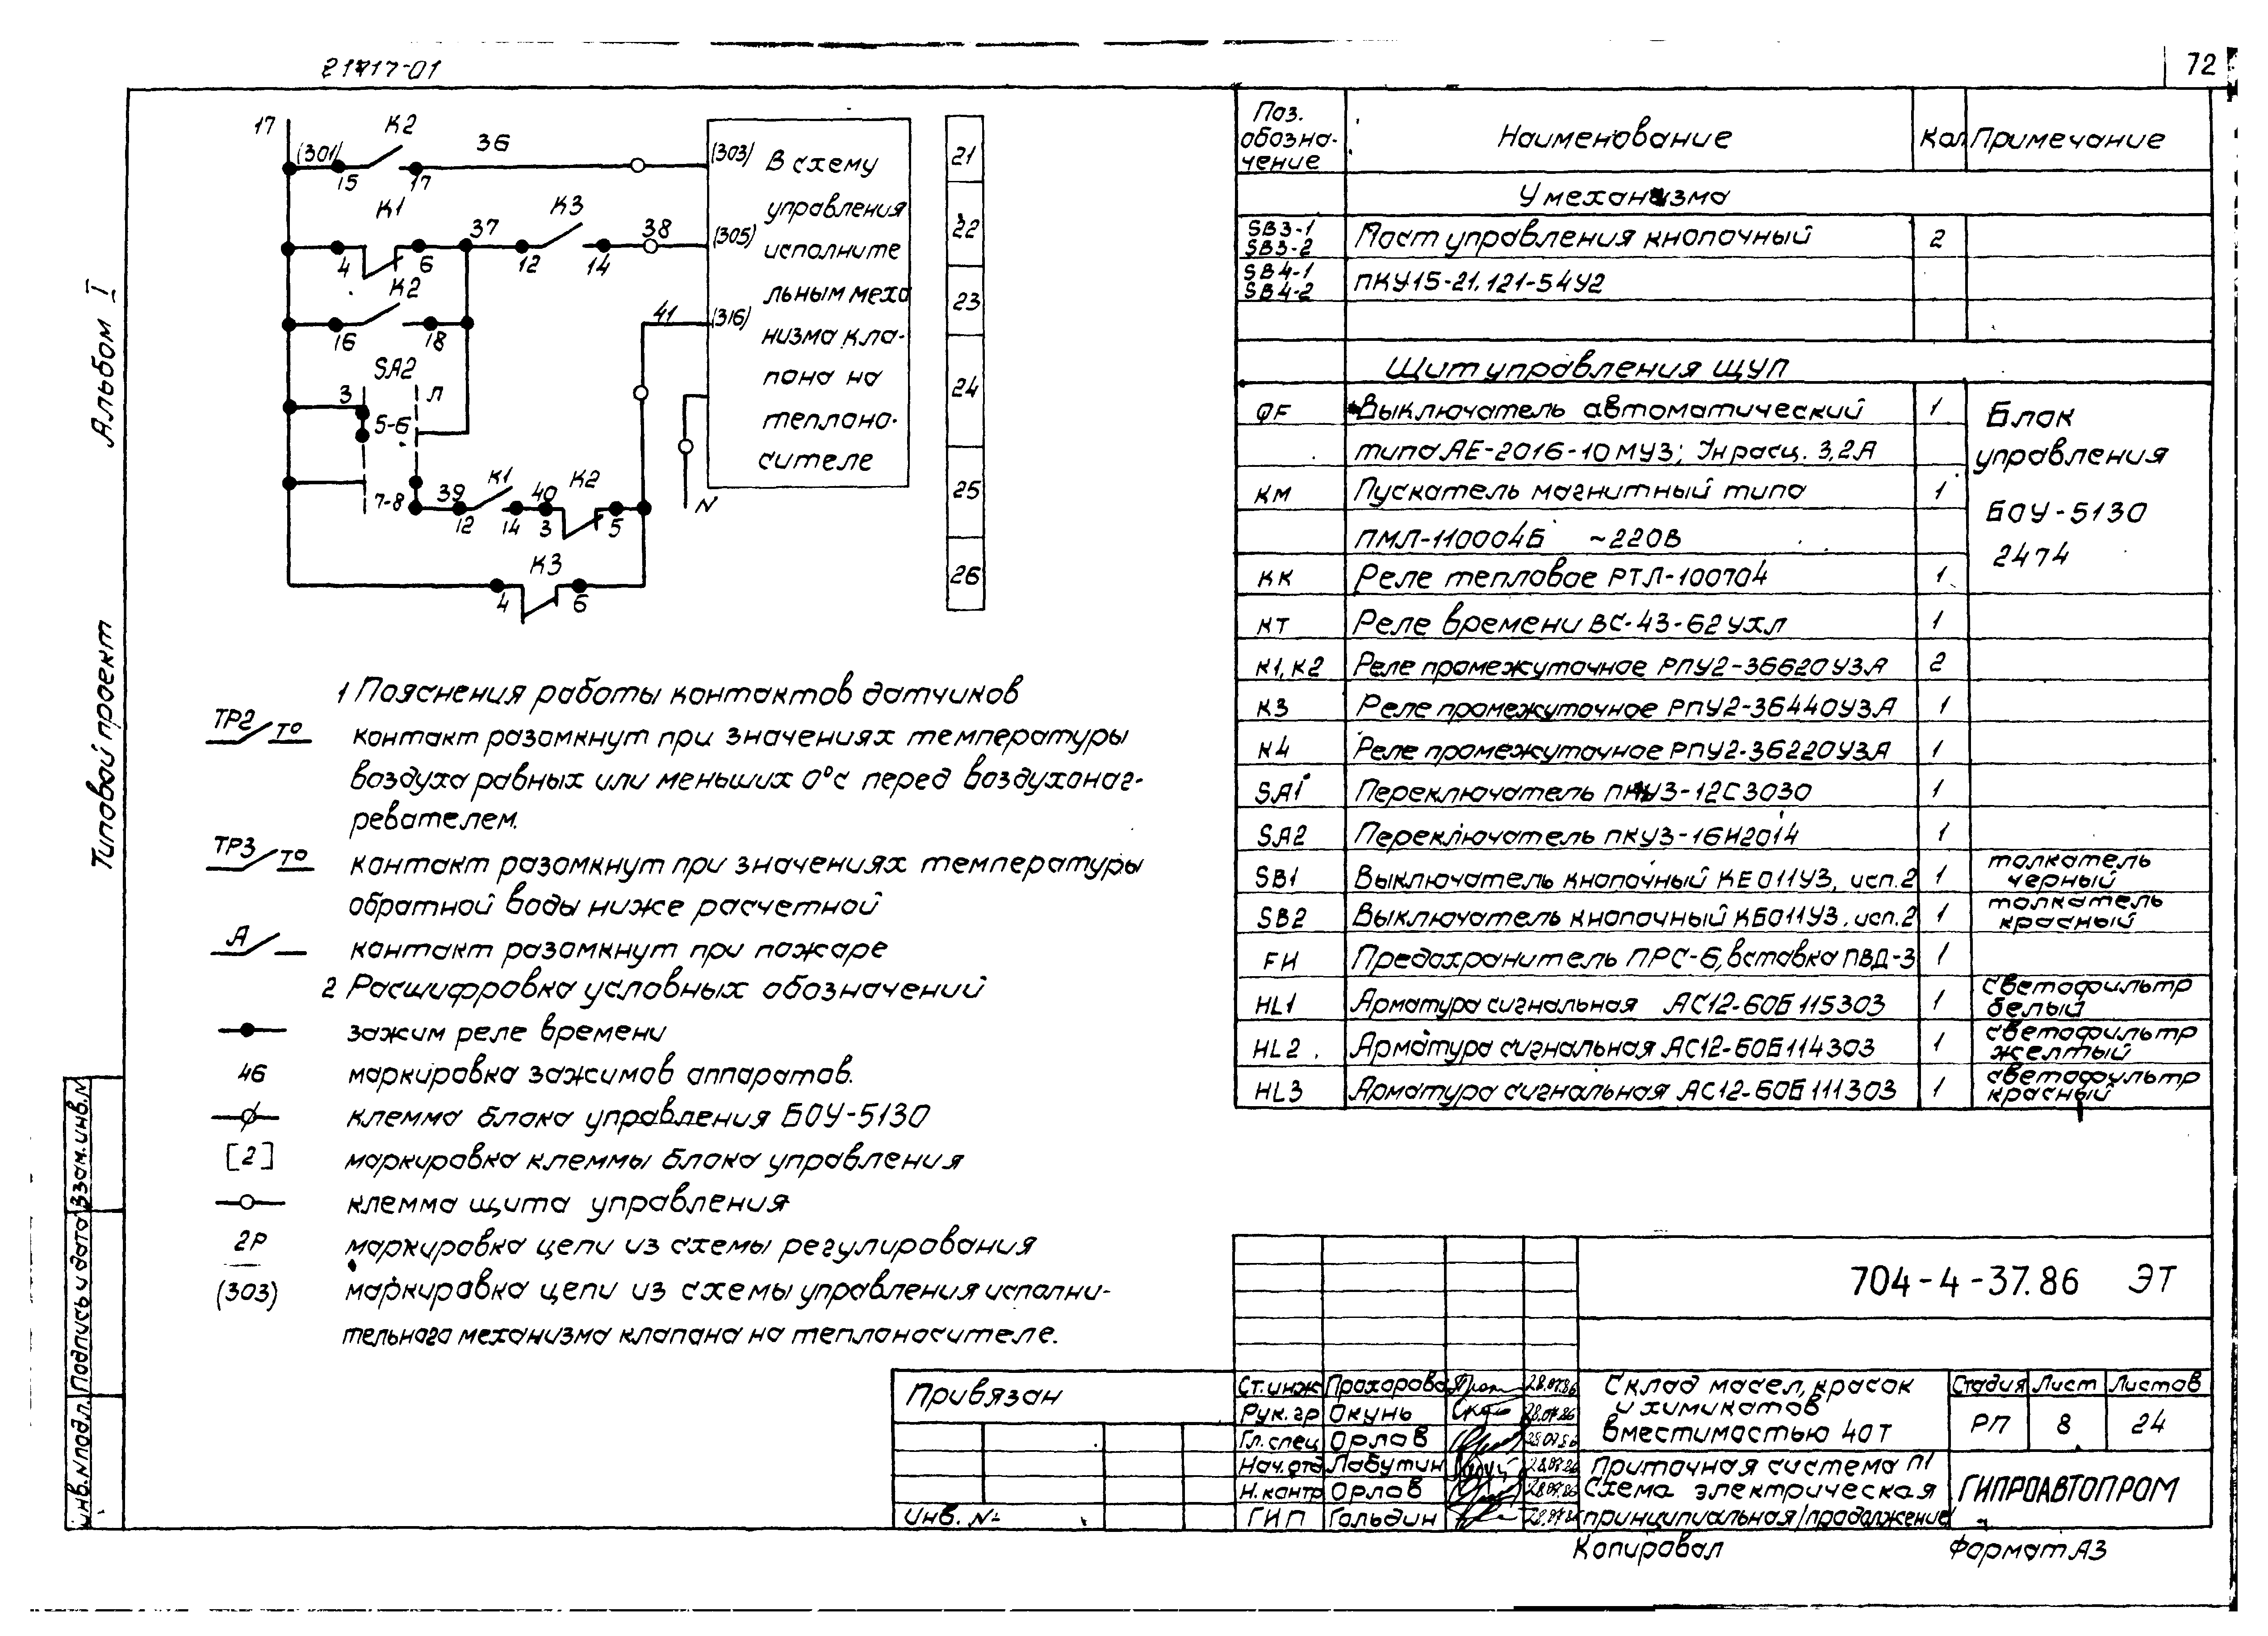 21717-01
72
Альбом I
Типовой проект
17
(301)
K2
15
17
36
(303)
K1
4
6
37
K3
12
14
38
(305)
K2
16
18
41
(316)
SA2
З
Л
5-6
7-8
39
K1
12
14
40
K2
3
5
N
K3
4
6
В схему
управления
исполните
льным меха
низма кла-
пана на
теплоно-
сителе
21
22
23
24
25
26
1 Пояснения работы контактов датчиков
ТР2 т°
контакт разомкнут при значениях температуры
воздуха равных или меньших 0°с перед воздухонаг-
ревателем.
ТР3 т°
контакт разомкнут при значениях температуры
обратной воды ниже расчетной
А
контакт разомкнут при пожаре
2 Расшифровка условных обозначений
зажим реле времени
46 маркировка зажимов аппаратов.
клемма блока управления БОУ-5130
[2] маркировка клеммы блока управления
клемма щита управления
2Р маркировка цепи из схемы регулирования
(303) маркировка цепи из схемы управления исполни-
тельного механизма клапана на теплоносителе.
Поз. обозна-чение Наименование Кол. Примечание
У механизма
SB3-1 SB3-2 Пост управления кнопочный 2
SB4-1 SB4-2 ПКУ15-21.121-54У2
Щит управления ЩУП
QF Выключатель автоматический 1 Блок
типа АЕ-2016-10МУ3; Iнрасц. 3,2А управления
КМ Пускатель магнитный типа 1 БОУ-5130
ПМЛ-110004Б ~220В 2474
КК Реле тепловое РТЛ-100704 1
КТ Реле времени ВС-43-62УХЛ 1
К1, К2 Реле промежуточное РПУ2-36620У3А 2
К3 Реле промежуточное РПУ2-36440У3А 1
К4 Реле промежуточное РПУ2-36220У3А 1
SA1 Переключатель ПКУ3-12С3030 1
SA2 Переключатель ПКУ3-16Н2014 1
SB1 Выключатель кнопочный КЕ011У3, исп.2 1 толкатель черный
SB2 Выключатель кнопочный КБ011У3. исп.2 1 толкатель красный
FИ Предохранитель ПРС-6, вставка ПВД-3 1
HL1 Арматура сигнальная АС12-60Б115303 1 светофильтр белый
HL2 Арматура сигнальная АС12-60Б114303 1 светофильтр желтый
HL3 Арматура сигнальная АС12-60Б111303 1 светофильтр красный
704-4-37.86 ЭТ
Привязан
Инв. №
Ст.инж Прохорова 28.07.86
Рук.гр Окунь 28.07.86
Гл.спец Орлов 28.07.86
Нач.отд Лабутин 28.07.86
Н.контр Орлов 28.07.86
ГИП Гольдин 28.07.86
Склад масел, красок
и химикатов
вместимостью 40т
Стадия Лист Листов
РП 8 24
Приточная система П1
Схема электрическая
принципиальная (продолжение)
ГИПРОАВТОПРОМ
Копировал
Формат А3
Взам.инв.N
Подпись и дата
Инв.N подл.